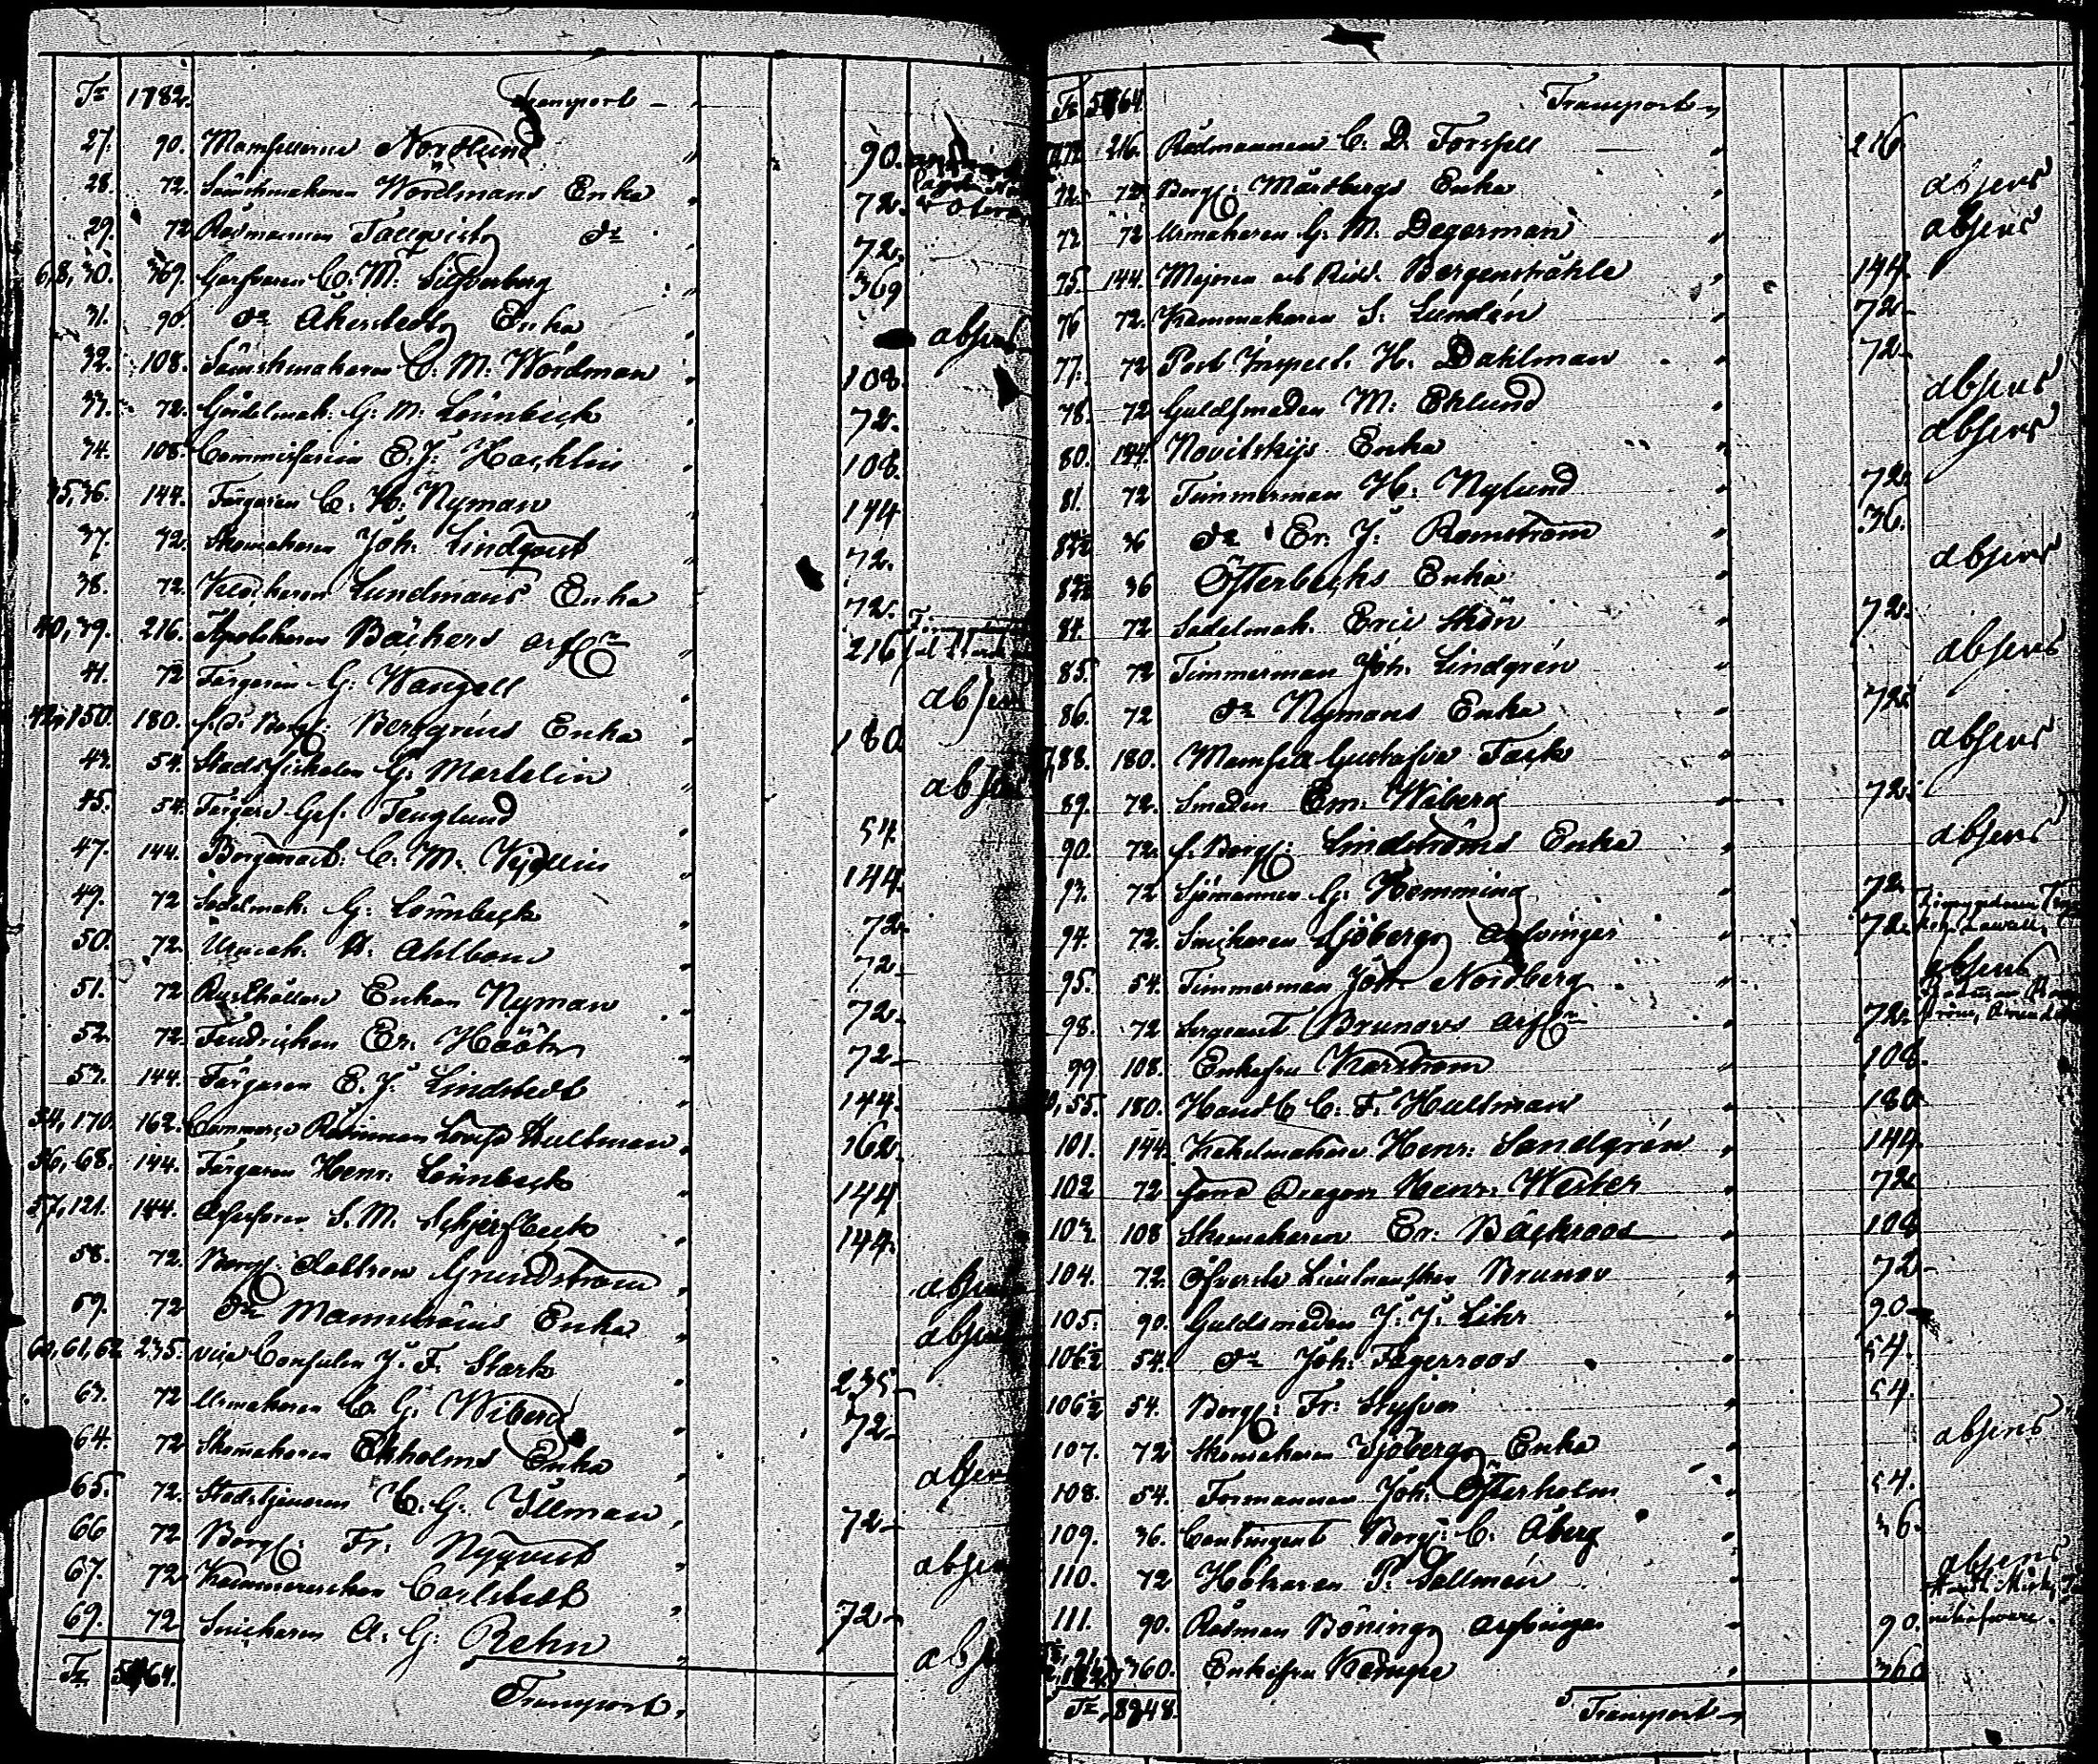 Tr 1782. Transport
27. 90. Mamsellerna Nordlund 90.
28. 72. Sämskmakaren Wördmans Enka 72.
29. 72 Rådmannen Tallqvists do 72.
6,8,30. 369. Garfvaren C. M. Silfverberg 369
31. 90. do Åkerstedts Enka absens
32. 108. Sämskmakaren C. M. Wördman 108.
33. 72. Gördelmak. G. M. Lönnbeck 72.
34. 108. Commissarien E. J. Hacklin 108.
35,36. 144. Färgaren C. H. Nyman 144
37. 72. Skomakaren Joh. Lindqvist 72.
38. 72. Klockaren Lundmans Enka 72.
40,39. 216. Apothekaren Bäckers 216
41. 72 Färgaren G. Wangell absens
42,150. 180. Berggréns Enka 180
43. 54. Stadsfiskalen G. Martelin absens
45. 54. Färgare Ges. Tenglund 54.
47. 144. C. M. 144.
49. 72 Sadelmak. G. Lönnbeck 72.
50. 72. Urmak. A. Ahlbom 72
51. 72 Rusthållare Enkan Nyman 72.
52. 72. Fendricken Er. Hööök 72
53. 144. Färgaren E. J. Lindstedt 144.
54,170. 162. Commerce Rådinnan Lovisa Hultman 162.
56,68. 144. Färgaren Henr. Lönnbeck 144
57,121. 144. Assessoren S. M. Schjerfbeck 144.
58. 72. Borg. Grundström absens
59. 72 do Enka absens
60,61,62 235. vice Consulen J. F. Stark 235
63. 72 Urmakaren C. G. Wiberg 72
64. 72 Skomakaren Ekholms Enka absens
65. 72. Stadstjenaren C. G. Illman 72
66 72 Borg. Fr. Nyqvist absens
67. 72 Kamrerarskan Carlstedt 72
69. 72 Snickaren A. G. Rehn
Tr 5 64. Transport
Tr 5 64 Transport
216. Rådmannen C. D. Forssell 216
72. 72. Borg. Mårdbergs Enka absens
73 72 Urmakaren G. M. Degerman absens
75. 144. Majoren och Ridd. Bergenstråhle 144.
76 72. Kammakaren S. Lundén 72
77. 72 Post Inspect. H. Dahlman 72
78. 72 Guldsmeden M. Eklund absens
80. 144 Novitskijs Enka absens
81. 72 Timmerman H. Nylund 72.
82½ 36 do Er. J. Romström 36.
82½ 36 Österbecks Enka absens
84. 72 Sadelmak. Eric Skön 72.
85. 72 Timmerman Joh. Lindgrén absens
86. 72 do Nymans Enka 72.
88. 180. Mamsell Gustafva Fack absens
89. 72. Smeden Em. Wiberg 72.
90. 72. f. Borg. Lindströms Enka absens
93. 72 Sjömannen G. Hemming 72.
94. 72. Snickaren Sjöbergs Arfvingar 72.
95. 54. Timmerman Joh. Nordberg absens
98. 72 Sergeant Brunovs 72.
99 108. Enkefru Karström 108.
55. 180. Handl C. F. Hultman 180
101. 144. Kakelmakare Henr. Sandgrén 144
102 72 Dragon Henr. Wester 72
103. 108 Skomakaren Er. Bäckroos 108
104. 72. Öfverste Lieutnantskan Brunov 72
105. 90. Guldsmeden J. J. Lihr 90.
106½ 54. do Joh. Fagerroos 54.
106½ 54. Borg. Fr. 54.
107. 72 Skomakaren Sjöbergs Enka absens
108. 54. Formannen Joh. Österholm 54.
109. 36. Contingent Borg. C. Åberg 36.
110. 72 Hökaren P. Sallmén absens
111. 90. Rådman Bönings Arfvingar 90.
360. Enkefru Kempe 360
Tr 8248. Transport